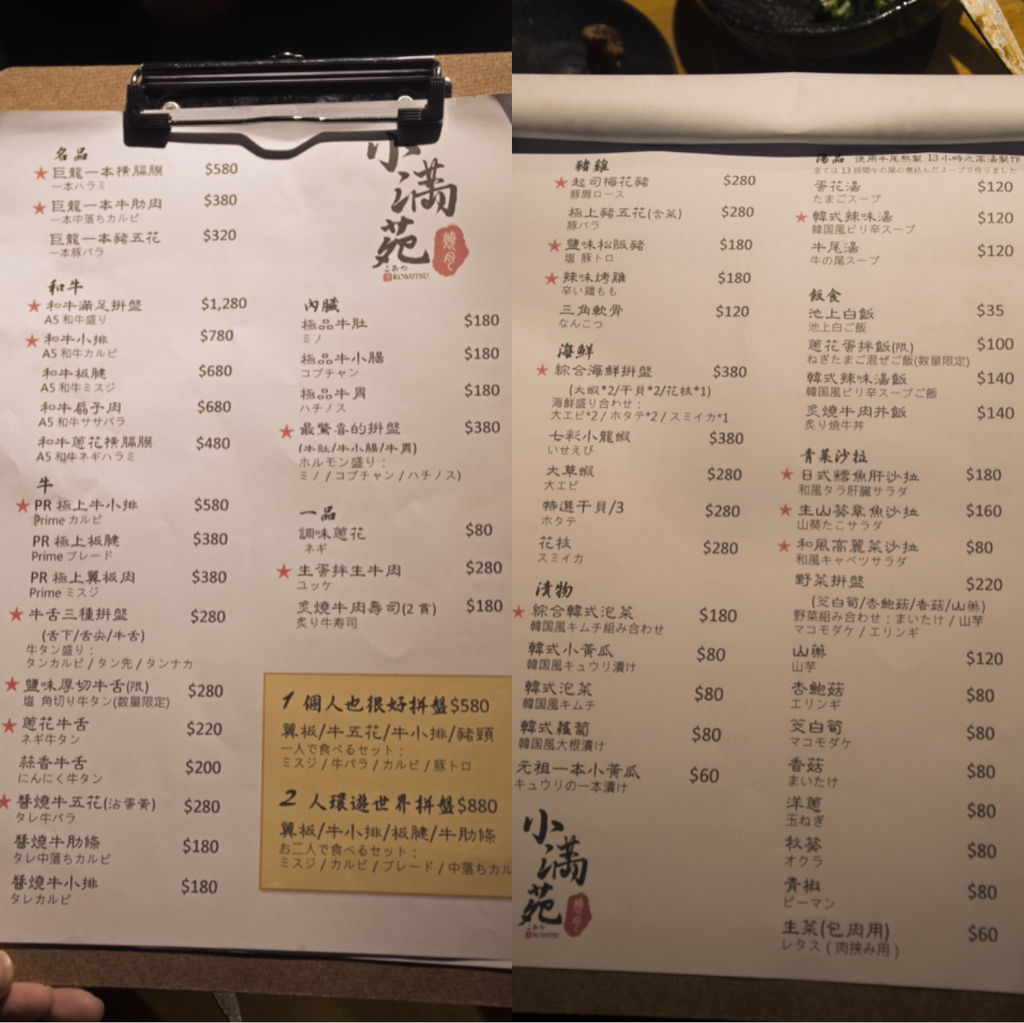 小満苑
燒肉
こまつ
KOMITSU
名品
★ 巨龍一本橫膈膜 $580
一本ハラミ
★ 巨龍一本牛肋肉 $380
一本中落ちカルビ
巨龍一本豬五花 $320
一本豚バラ
和牛
★ 和牛滿足拼盤 $1,280
A5 和牛盛り
★ 和牛小排 $780
A5 和牛カルビ
和牛板腱 $680
A5 和牛ミスジ
和牛扇子肉 $680
A5 和牛ササバラ
和牛蔥花橫膈膜 $480
A5 和牛ネギハラミ
牛
★ PR 極上牛小排 $580
Prime カルビ
PR 極上板腱 $380
Prime ブレード
PR 極上翼板肉 $380
Prime ミスジ
★ 牛舌三種拼盤 $280
(舌下/舌尖/牛舌)
牛タン盛り：
タンカルビ / タン先 / タンナカ
★ 鹽味厚切牛舌(限) $280
塩 角切り牛タン(数量限定)
★ 蔥花牛舌 $220
ネギ牛タン
蒜香牛舌 $200
にんにく牛タン
★ 醬燒牛五花(沾蛋黃) $280
タレ牛バラ
醬燒牛肋條 $180
タレ中落ちカルビ
醬燒牛小排 $180
タレカルビ
內臟
極品牛肚 $180
ミノ
極品牛小腸 $180
コプチャン
極品牛胃 $180
ハチノス
★ 最驚喜的拼盤 $380
(牛肚/牛小腸/牛胃)
ホルモン盛り：
ミノ / コプチャン / ハチノス)
一品
調味蔥花 $80
ネギ
★ 生蛋拌生牛肉 $280
ユッケ
炙燒牛肉壽司(2 貫) $180
炙り牛寿司
1 個人也很好拼盤$580
翼板/牛五花/牛小排/豬頸
一人で食べるセット：
ミスジ / 牛バラ / カルビ / 豚トロ
2 人環遊世界拼盤$880
翼板/牛小排/板腱/牛肋條
お二人で食べるセット：
ミスジ / カルビ / ブレード / 中落ちカル
豬雞
★ 起司梅花豬 $280
豚肩ロース
極上豬五花(含菜) $280
豚バラ
★ 鹽味松阪豬 $180
塩 豚トロ
★ 辣味烤雞 $180
辛い鶏もも
三角軟骨 $120
なんこつ
海鮮
★ 綜合海鮮拼盤 $380
(大蝦*2/干貝*2/花枝*1)
海鮮盛り合わせ：
大エビ*2 / ホタテ*2 / スミイカ*1
七彩小龍蝦 $380
いせえび
大草蝦 $280
大エビ
特選干貝/3 $280
ホタテ
花枝 $280
スミイカ
漬物
★ 綜合韓式泡菜 $180
韓国風キムチ組み合わせ
韓式小黃瓜 $80
韓国風キュウリ漬け
韓式泡菜 $80
韓国風キムチ
韓式蘿蔔 $80
韓国風大根漬け
元祖一本小黃瓜 $60
キュウリの一本漬け
小満苑
燒肉
KOMITSU
湯品 使用牛尾熬製 13 小時之濃湯製作
全ては 13 時間牛の尾の煮込んだスープで作りました
蛋花湯 $120
たまごスープ
★ 韓式辣味湯 $120
韓国風ピリ辛スープ
牛尾湯 $120
牛の尾スープ
飯食
池上白飯 $35
池上白ご飯
蔥花蛋拌飯(限) $100
ねぎたまご混ぜご飯(数量限定)
韓式辣味湯飯 $140
韓国風ピリ辛スープご飯
炙燒牛肉丼飯 $140
炙り焼牛丼
青菜沙拉
★ 日式鱈魚肝沙拉 $180
和風タラ肝臓サラダ
★ 生山葵章魚沙拉 $160
山葵たこサラダ
★ 和風高麗菜沙拉 $80
和風キャベツサラダ
野菜拼盤 $220
(茭白筍/杏鮑菇/香菇/山藥)
野菜組み合わせ：まいたけ / 山芋
マコモダケ / エリンギ
山藥 $120
山芋
杏鮑菇 $80
エリンギ
茭白筍 $80
マコモダケ
香菇 $80
まいたけ
洋蔥 $80
玉ねぎ
秋葵 $80
オクラ
青椒 $80
ピーマン
生菜(包肉用) $60
レタス ( 肉挟み用 )